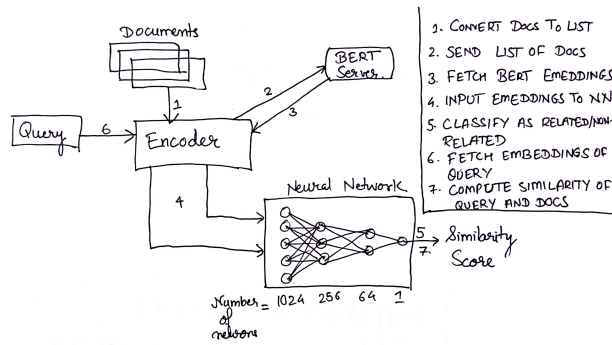 Documents
BERT
Server.
1
2
3
Query
6
Encoder
4
Neural Network
5
7.
Similarity
Score
Number = 1024 256 64 1
of
neurons
1. CONVERT DOCS TO LIST
2. SEND LIST OF DOCS
3. FETCH BERT EMEDDINGS
4. INPUT EMEDDINGS TO NN
5. CLASSIFY AS RELATED/NON-
RELATED
6. FETCH EMBEDDINGS OF
QUERY
7. COMPUTE SIMILARITY OF
QUERY AND DOCS